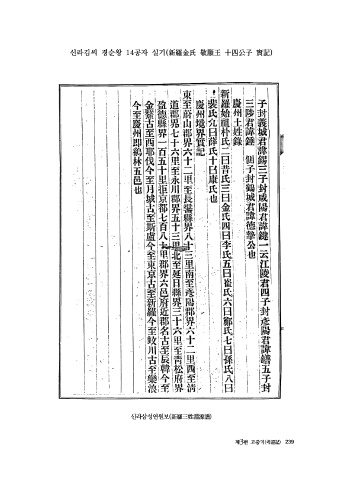 신라김씨 경순왕 14공자 실기(新羅金氏 敬順王 十四公子 實記)
子封義城君諱錫三子封咸陽君諱鏶一云江陵君四子封彦陽君諱鐥五子封
三陟君諱鍾 側子封鶴城君諱德摯公也
慶州土姓錄
新羅始祖朴氏一曰昔氏三曰金氏四曰李氏五曰崔氏六曰鄭氏七曰孫氏八曰
裴氏九曰薛氏十曰康氏也
慶州境界實記
東至蔚山郡界六十二里至長鬐縣界八十三里南至彦陽郡界六十二里西至淸
道郡界七十六里至永川郡界五十三里北至延日縣界三十六里至靑松府界
盈德縣界一百五十里距京都七百八十里郡界六邑府近郡名古至辰韓今至
金鰲古至西耶伐今至月城古至斯盧今至東京古至新羅今至蚊川古至樂浪
今至慶州卽鷄林五邑也
신라삼성연원보(新羅三姓淵源譜)
제3편 고증기(考證記) 239